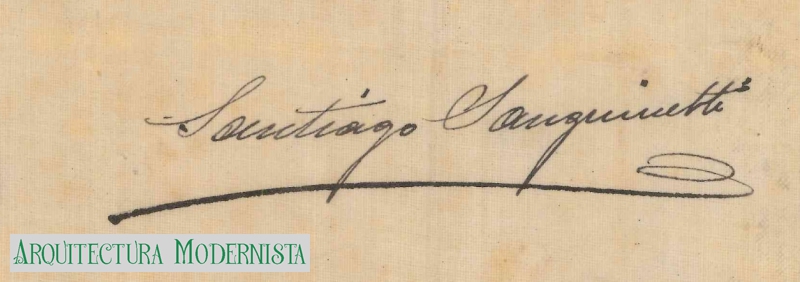 Santiago Sanguinetti
ARQUITECTURA MODERNISTA